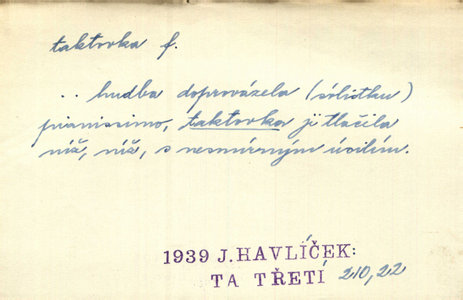 taktovka f.
.. hudba doprovázela (sólistku)
pianissimo, taktovka ji tlačila
níž, níž, s nesmírným úsilím.
1939 J. HAVLÍČEK:
TA TŘETÍ 210,22